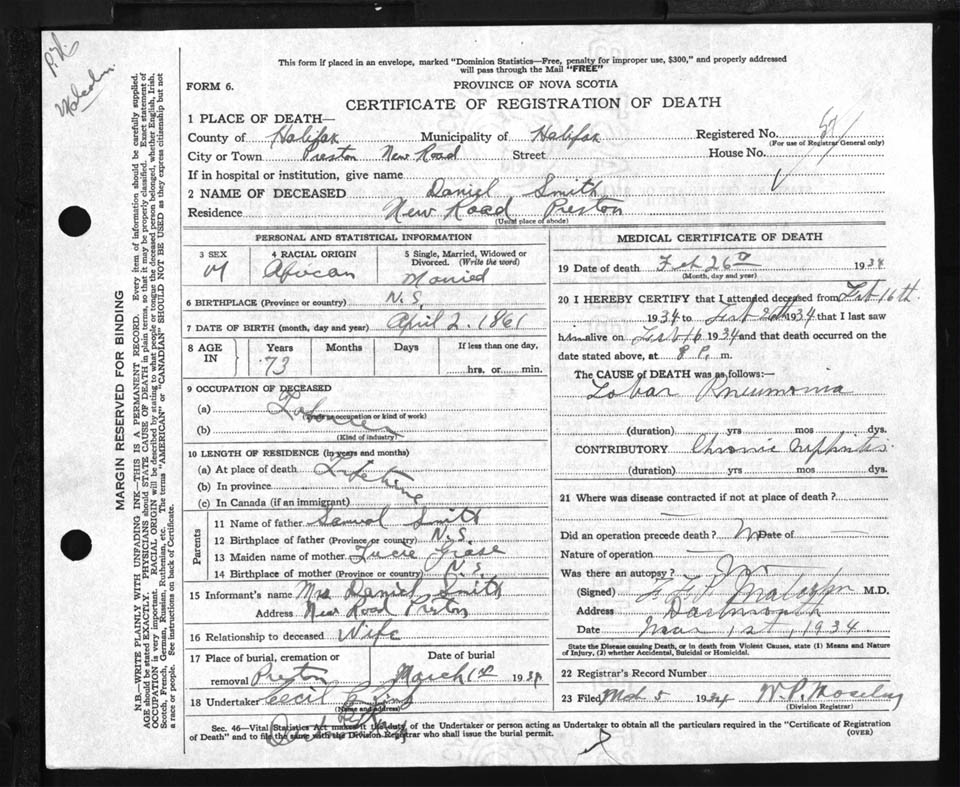 P.N.
Malcolm.
This form if placed in an envelope, marked "Dominion Statistics—Free, penalty for improper use, $300," and properly addressed
will pass through the Mail "FREE"
FORM 6.
PROVINCE OF NOVA SCOTIA
CERTIFICATE OF REGISTRATION OF DEATH
1 PLACE OF DEATH—
County of Halifax Municipality of Halifax Registered No.
(For use of Registrar General only)
City or Town Preston New Road Street House No.
If in hospital or institution, give name
2 NAME OF DECEASED Daniel Smith
Residence New Road Preston
(Usual place of abode)
PERSONAL AND STATISTICAL INFORMATION
3 SEX 4 RACIAL ORIGIN 5 Single, Married, Widowed or
Divorced. (Write the word)
M African Married
6 BIRTHPLACE (Province or country) N.S.
7 DATE OF BIRTH (month, day and year) April 2. 1861
8 AGE IN Years Months Days If less than one day,
73 hrs. or min.
9 OCCUPATION OF DECEASED
(a) Laborer
(Trade, occupation or kind of work)
(b)
(Kind of industry)
10 LENGTH OF RESIDENCE (in years and months)
(a) At place of death Lifetime
(b) In province
(c) In Canada (if an immigrant)
Parents
11 Name of father Samuel Smith
12 Birthplace of father (Province or country) N.S.
13 Maiden name of mother
14 Birthplace of mother (Province or country) N.S.
15 Informant's name Mrs Daniel Smith
Address New Road Preston
16 Relationship to deceased Wife
17 Place of burial, cremation or Date of burial
removal Preston March 1st 1934
18 Undertaker Cecil
(Name and address)
MEDICAL CERTIFICATE OF DEATH
19 Date of death Feb 26th 1934
(Month, day and year)
20 I HEREBY CERTIFY that I attended deceased from Feb 16th
1934 to Feb 26th 1934 that I last saw
him alive on Feb 16 1934 and that death occurred on the
date stated above, at 8 P. m.
The CAUSE OF DEATH was as follows:—
Lobar Pneumonia
(duration) yrs mos dys.
CONTRIBUTORY Chronic Nephritis
(duration) yrs mos dys.
21 Where was disease contracted if not at place of death?
Did an operation precede death? No Date of
Nature of operation
Was there an autopsy?
(Signed) Malcolm M.D.
Address Dartmouth
Date Mar 1st, 1934
State the Disease causing Death, or in death from Violent Causes, state (1) Means and Nature
of Injury, (2) whether Accidental, Suicidal or Homicidal.
22 Registrar's Record Number
23 Filed Mch 5 1934 W. P. Moseley
(Division Registrar)
Sec. 46—Vital Statistics Act makes it the duty of the Undertaker or person acting as Undertaker to obtain all the particulars required in the "Certificate of Registration
of Death" and to file the same with the Division Registrar who shall issue the burial permit. (OVER)
MARGIN RESERVED FOR BINDING
N.B.—WRITE PLAINLY WITH UNFADING INK—THIS IS A PERMANENT RECORD. Every item of information should be carefully supplied.
AGE should be stated EXACTLY. PHYSICIANS should STATE CAUSE OF DEATH in plain terms, so that it may be properly classified. Exact statement of
OCCUPATION is very important. RACIAL ORIGIN will be described by stating to what people or tongue the deceased person belonged, whether English, Irish,
Scotch, French, German, Russian, Ruthenian, etc. The terms "AMERICAN" or "CANADIAN" SHOULD NOT BE USED as they express citizenship but not
a race or people. See instructions on back of Certificate.